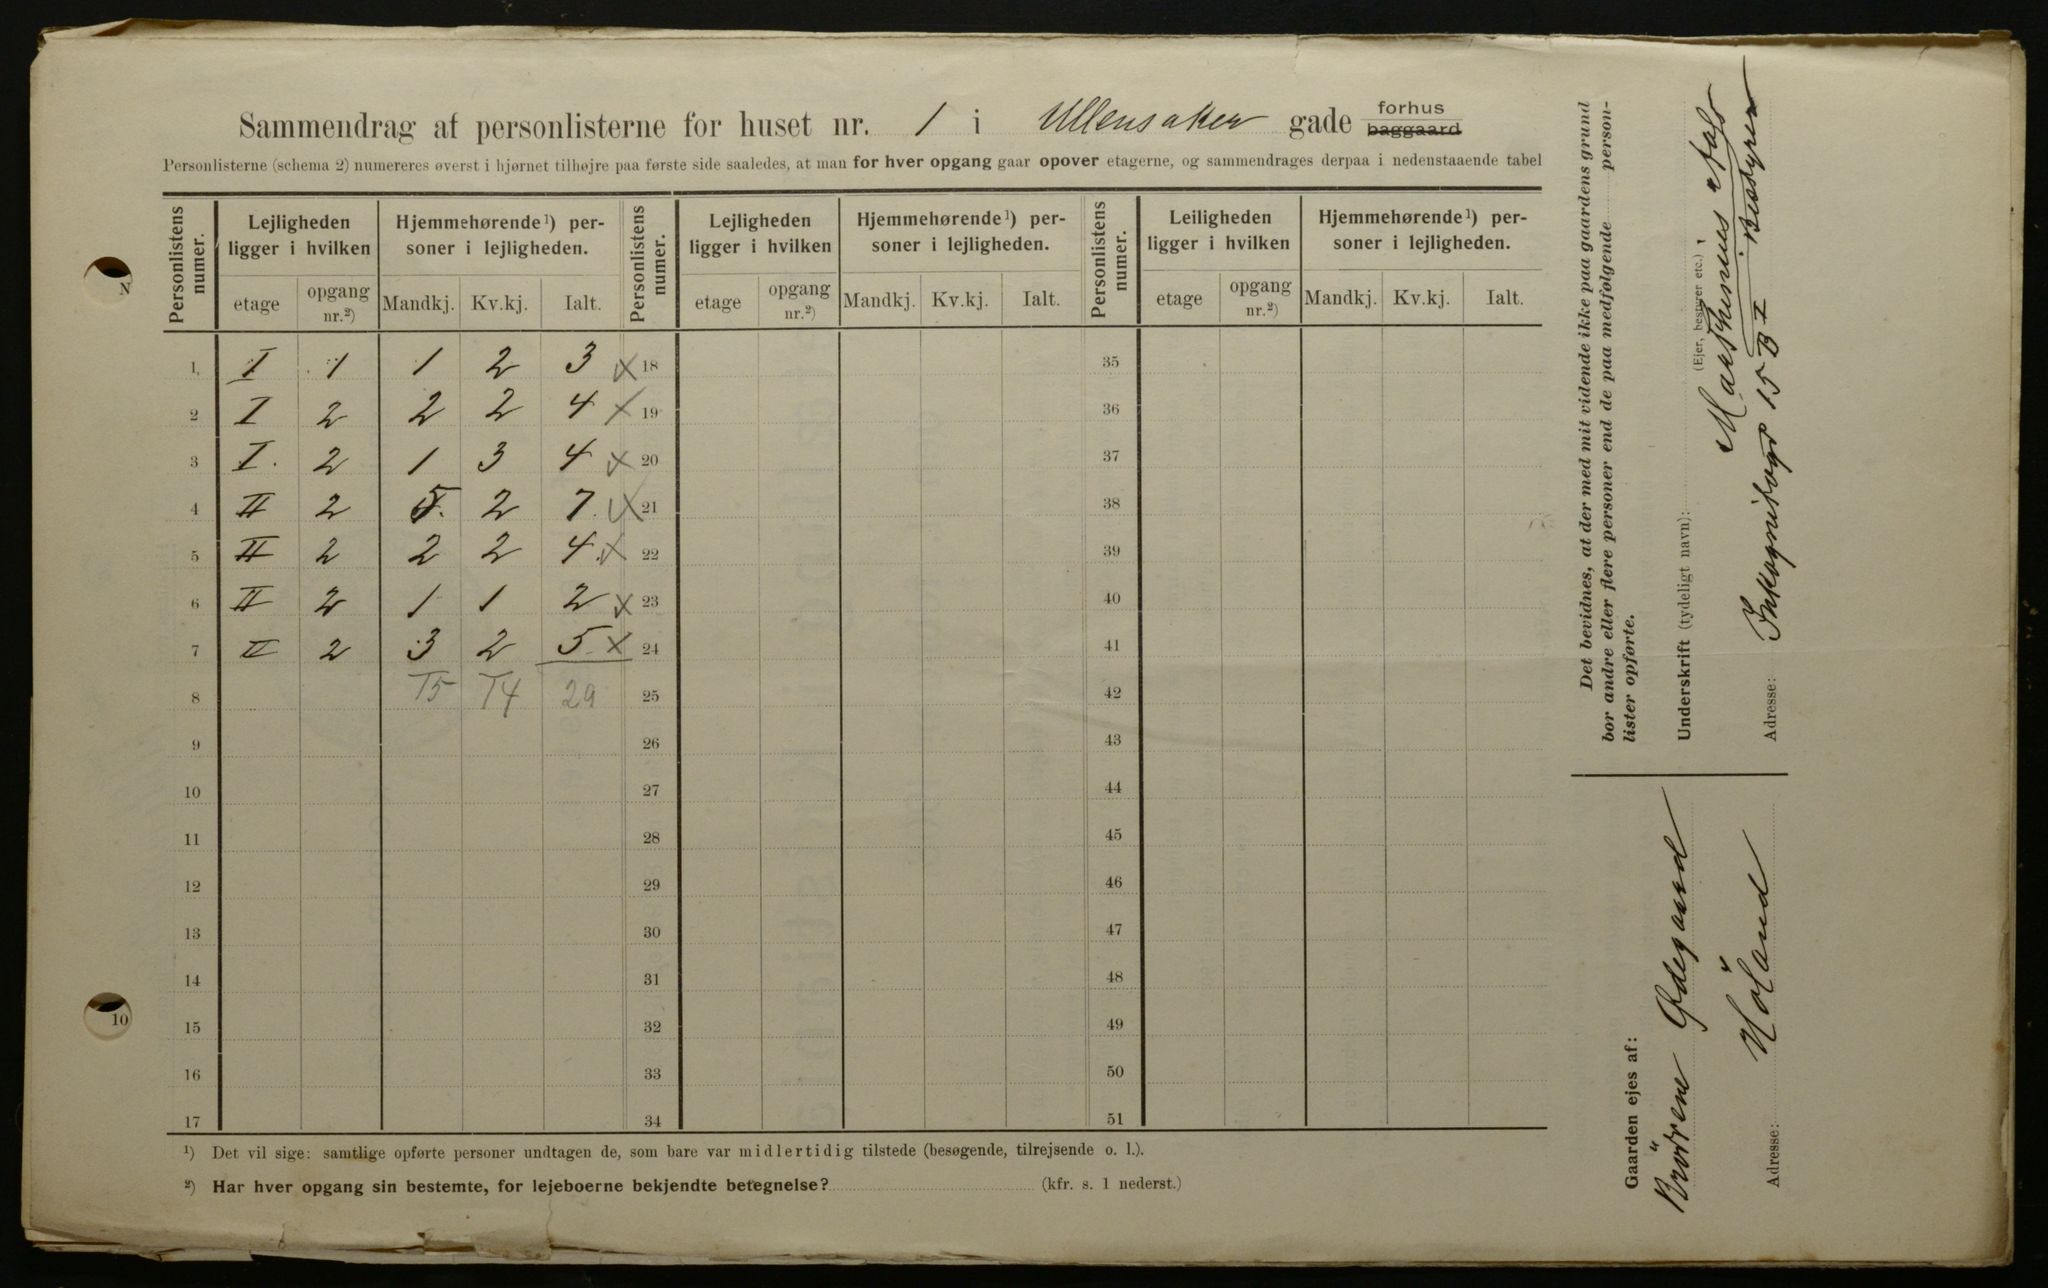 Sammendrag af personlisterne for huset nr. 1 i Ullensaker gade forhus baggaard
Personlisterne (schema 2) numereres øverst i hjørnet tilhøjre paa første side saaledes, at man for hver opgang gaar opover etagerne, og sammendrages derpaa i nedenstaaende tabel
Personlistens numer. Lejligheden ligger i hvilken Hjemmehørende ¹) personer i lejligheden. Personlistens numer. Lejligheden ligger i hvilken Hjemmehørende ¹) personer i lejligheden. Personlistens numer. Leiligheden ligger i hvilken Hjemmehørende ¹) personer i lejligheden.
etage opgang nr.²) Mandkj. Kv.kj. Ialt. etage opgang nr.²) Mandkj. Kv.kj. Ialt. etage opgang nr.²) Mandkj. Kv.kj. Ialt.
1, I 1 1 2 3 x 18 35
2 I 2 2 2 4 x 19 36
3 I. 2 1 3 4 x 20 37
4 II 2 5. 2 7. x 21 38
5 II 2 2 2 4. x 22 39
6 II 2 1 1 2 x 23 40
7 II 2 3 2 5 x 24 41
8 15 14 29 25 42
9 26 43
10 27 44
11 28 45
12 29 46
13 30 47
14 31 48
15 32 49
16 33 50
17 34 51
¹) Det vil sige: samtlige opførte personer undtagen de, som bare var midlertidig tilstede (besøgende, tilrejsende o. l.).
²) Har hver opgang sin bestemte, for lejeboerne bekjendte betegnelse? (kfr. s. 1 nederst.)
Det bevidnes, at der med mit vidende ikke paa gaardens grund
bor andre eller flere personer end de paa medfølgende personlister opførte.
Underskrift (tydeligt navn):
(Ejer, bestyrer etc.)
Bestyrer
Adresse: Inkognitogt 15 B I
Gaarden ejes af:
Brödrene Ødegaard
Adresse: Höland
N
10